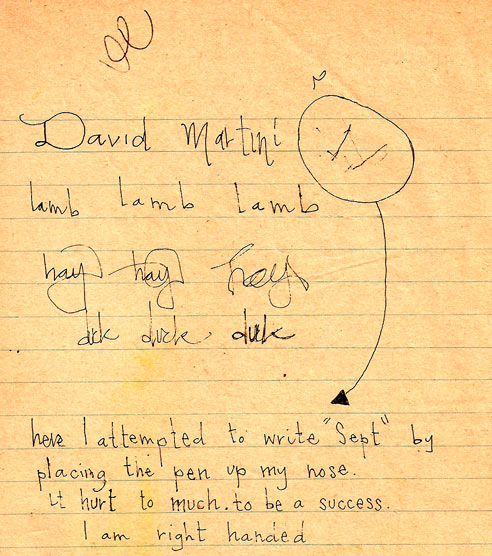 David Martini
lamb lamb lamb
hay hay hay
duck duck duck
here I attempted to write "Sept" by
placing the pen up my nose.
It hurt to much. to be a success.
I am right handed